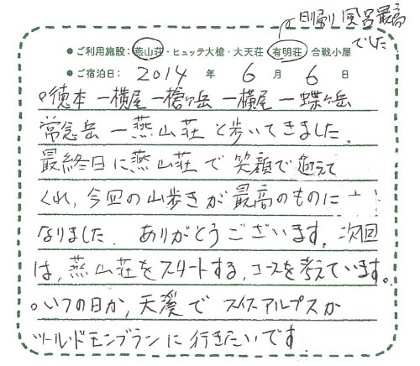 風呂最高
でした
●ご利用施設：燕山荘・ヒュッテ大槍・大天荘 有明荘 合戦小屋
●ご宿泊日： 2014 年 6 月 6 日
徳本－横尾－槍ヶ岳－横尾－蝶ヶ岳
常念岳－燕山荘と歩いてきました。
最終日に燕山荘で笑顔で迎えて
くれ、今回の山歩きが最高のものに
なりました。ありがとうございます。次回
は、燕山荘をスタートする、コースを考えています。
○いつの日か、天溪で スイスアルプスか
ツールドモンブランに行きたいです